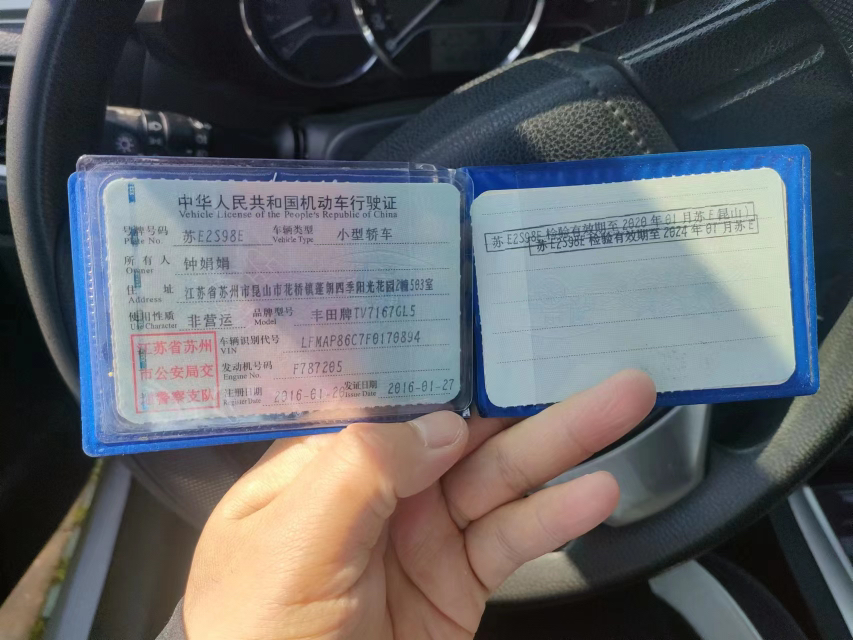 中华人民共和国机动车行驶证
Vehicle License of the People's Republic of China
号牌号码 苏E2S98E 车辆类型 小型轿车
Plate No. Vehicle Type
所有人 钟娟娟
Owner
住址 江苏省苏州市昆山市花桥镇蓬朗四季阳光花园2幢503室
Address
使用性质 非营运 品牌型号 丰田牌TV7167GL5
Use Character Model
江苏省苏州
市公安局交
警察支队
车辆识别代号 LFMAP86C7F0170894
VIN
发动机号码 F787205
Engine No.
注册日期 2016-01-20 发证日期 2016-01-27
Register Date Issue Date
苏E2S98E 检验有效期至 2020 年 01 月苏E昆山
苏E2S98E 检验有效期至 2024 年 01 月苏E